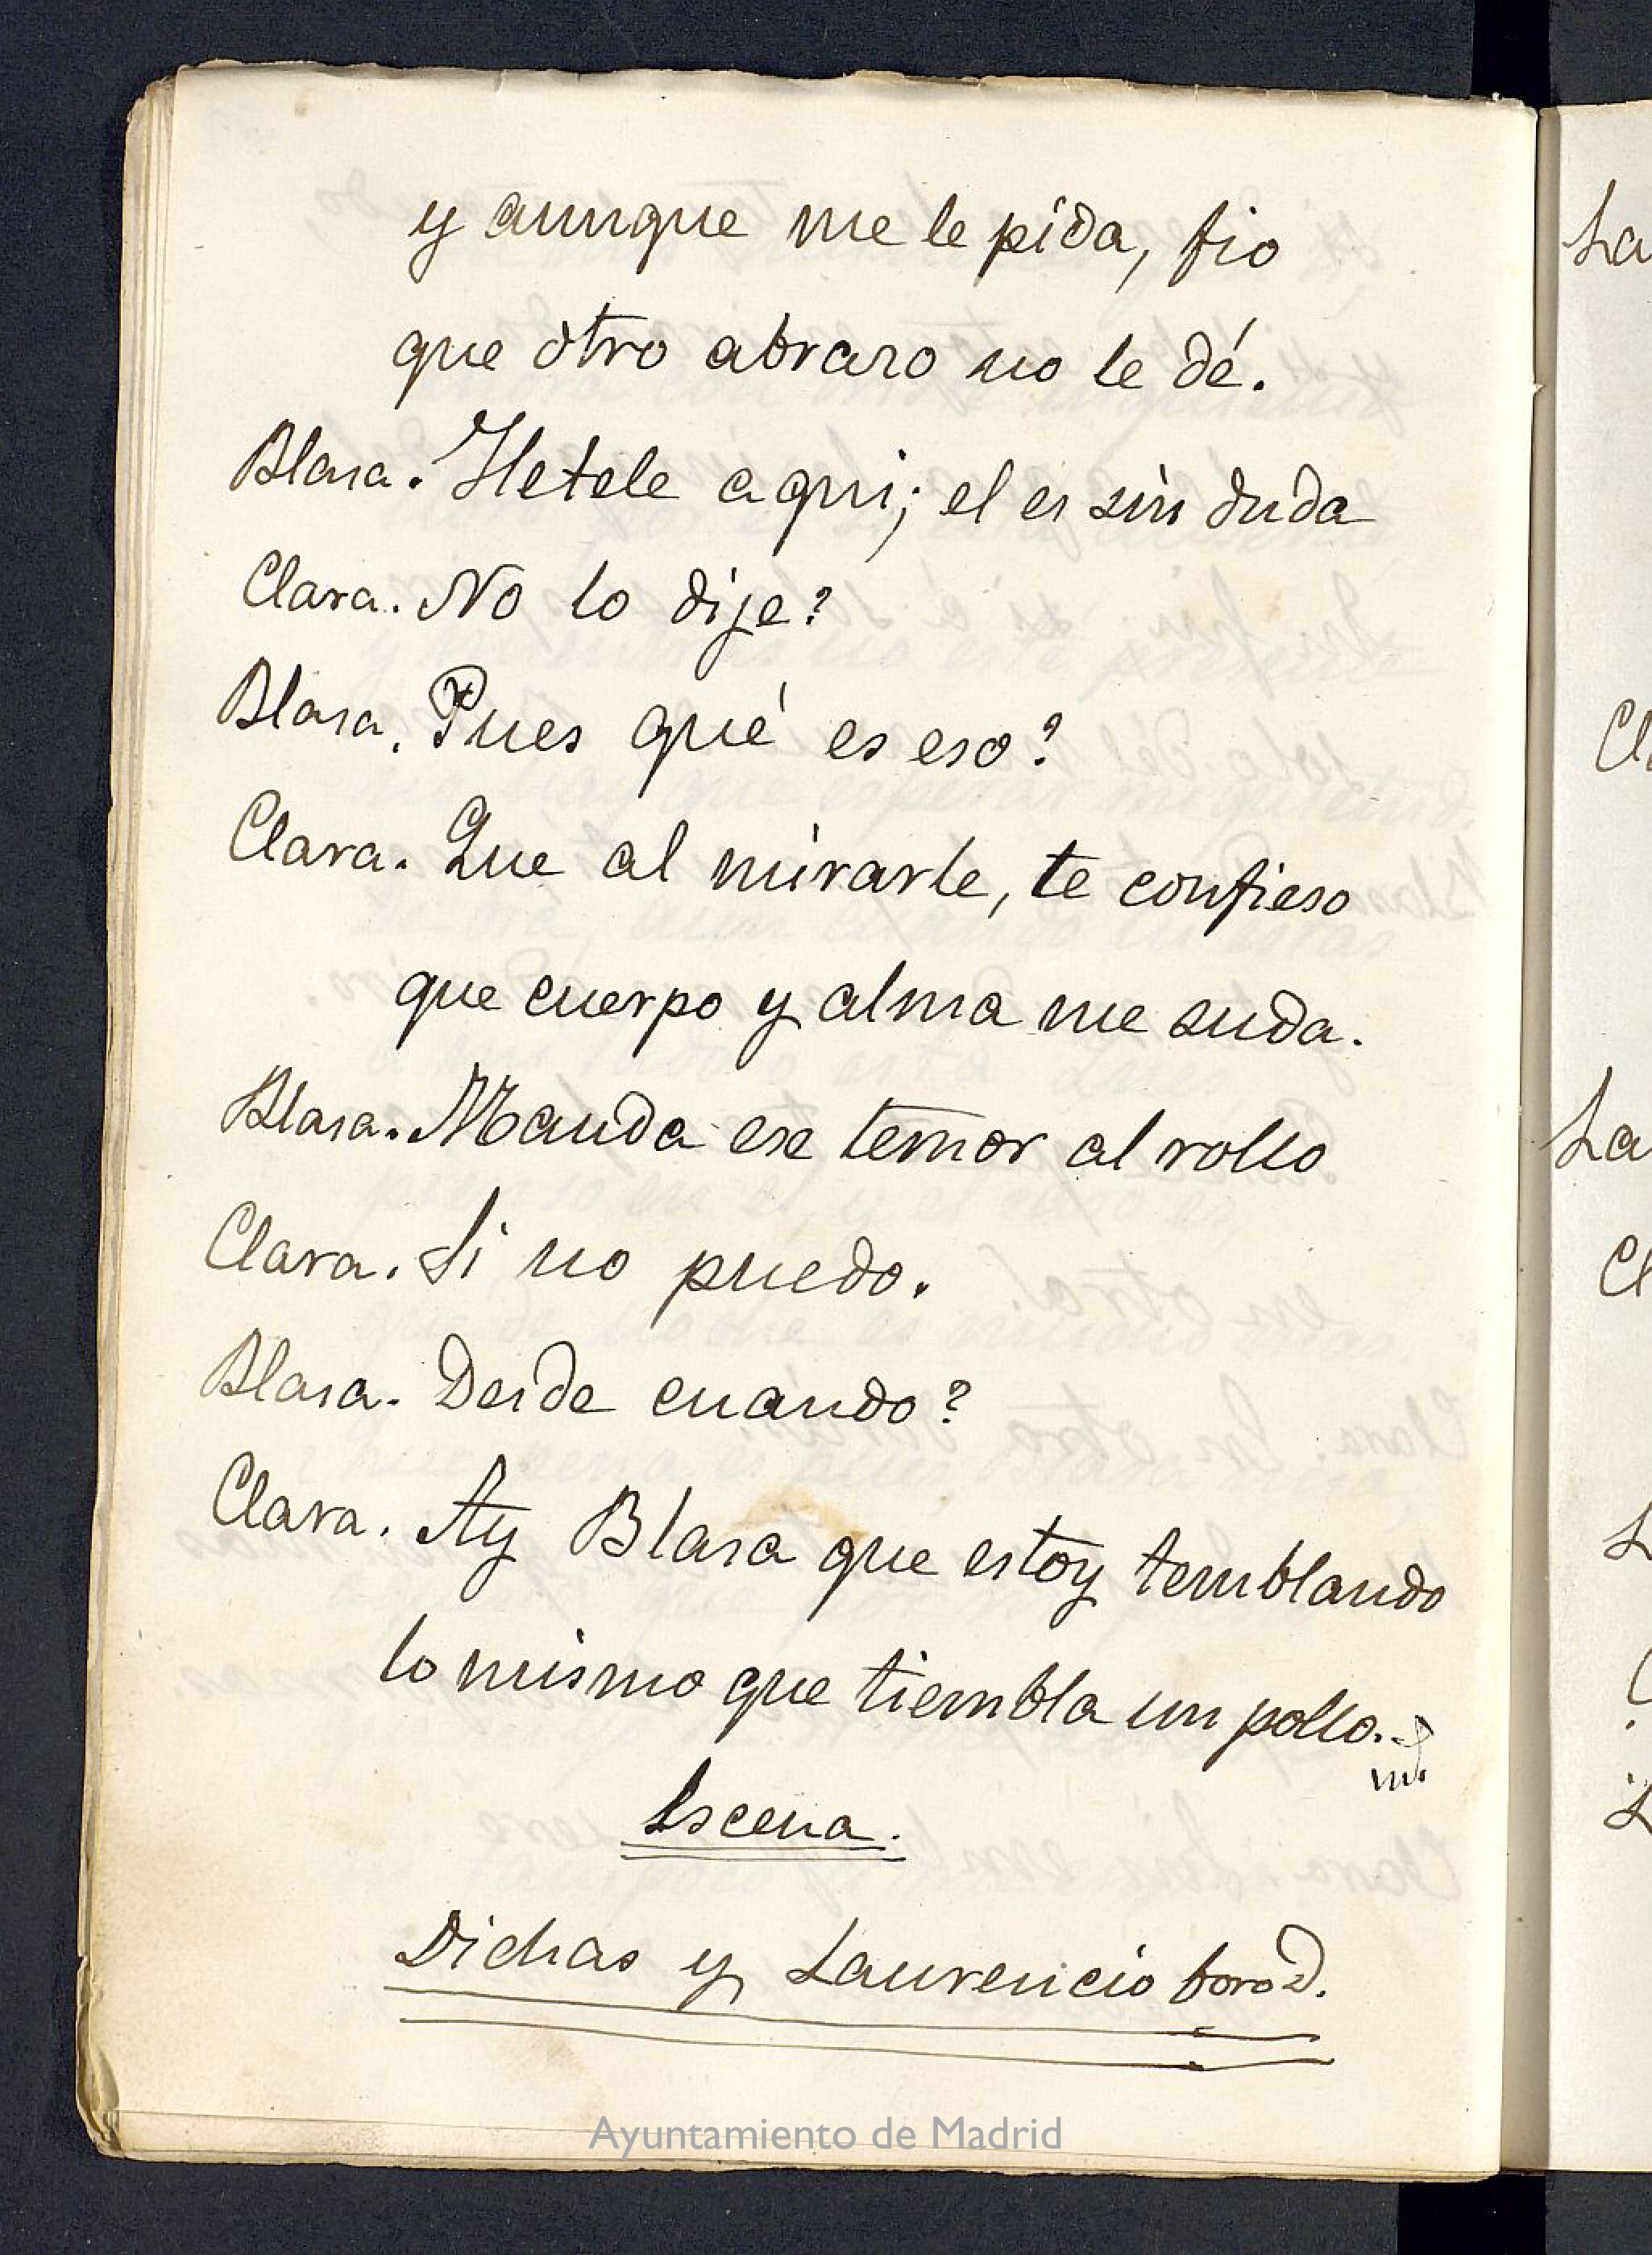 y aunque me le pida, fio
que otro abrazo no le dé.
Blasa. Hetele aqui; el es sin duda
Clara. No lo dije?
Blasa. Pues qué es eso?
Clara. Que al mirarle, te confieso
que cuerpo y alma me suda.
Blasa. Manda ese temor al rollo
Clara. Si no puedo.
Blasa. Desde cuando?
Clara. Ay Blasa que estoy temblando
lo mismo que tiembla un pollo.
Escena.
Dichas y Laurencio foro D.
Ayuntamiento de Madrid
La
Cl
La
Cl